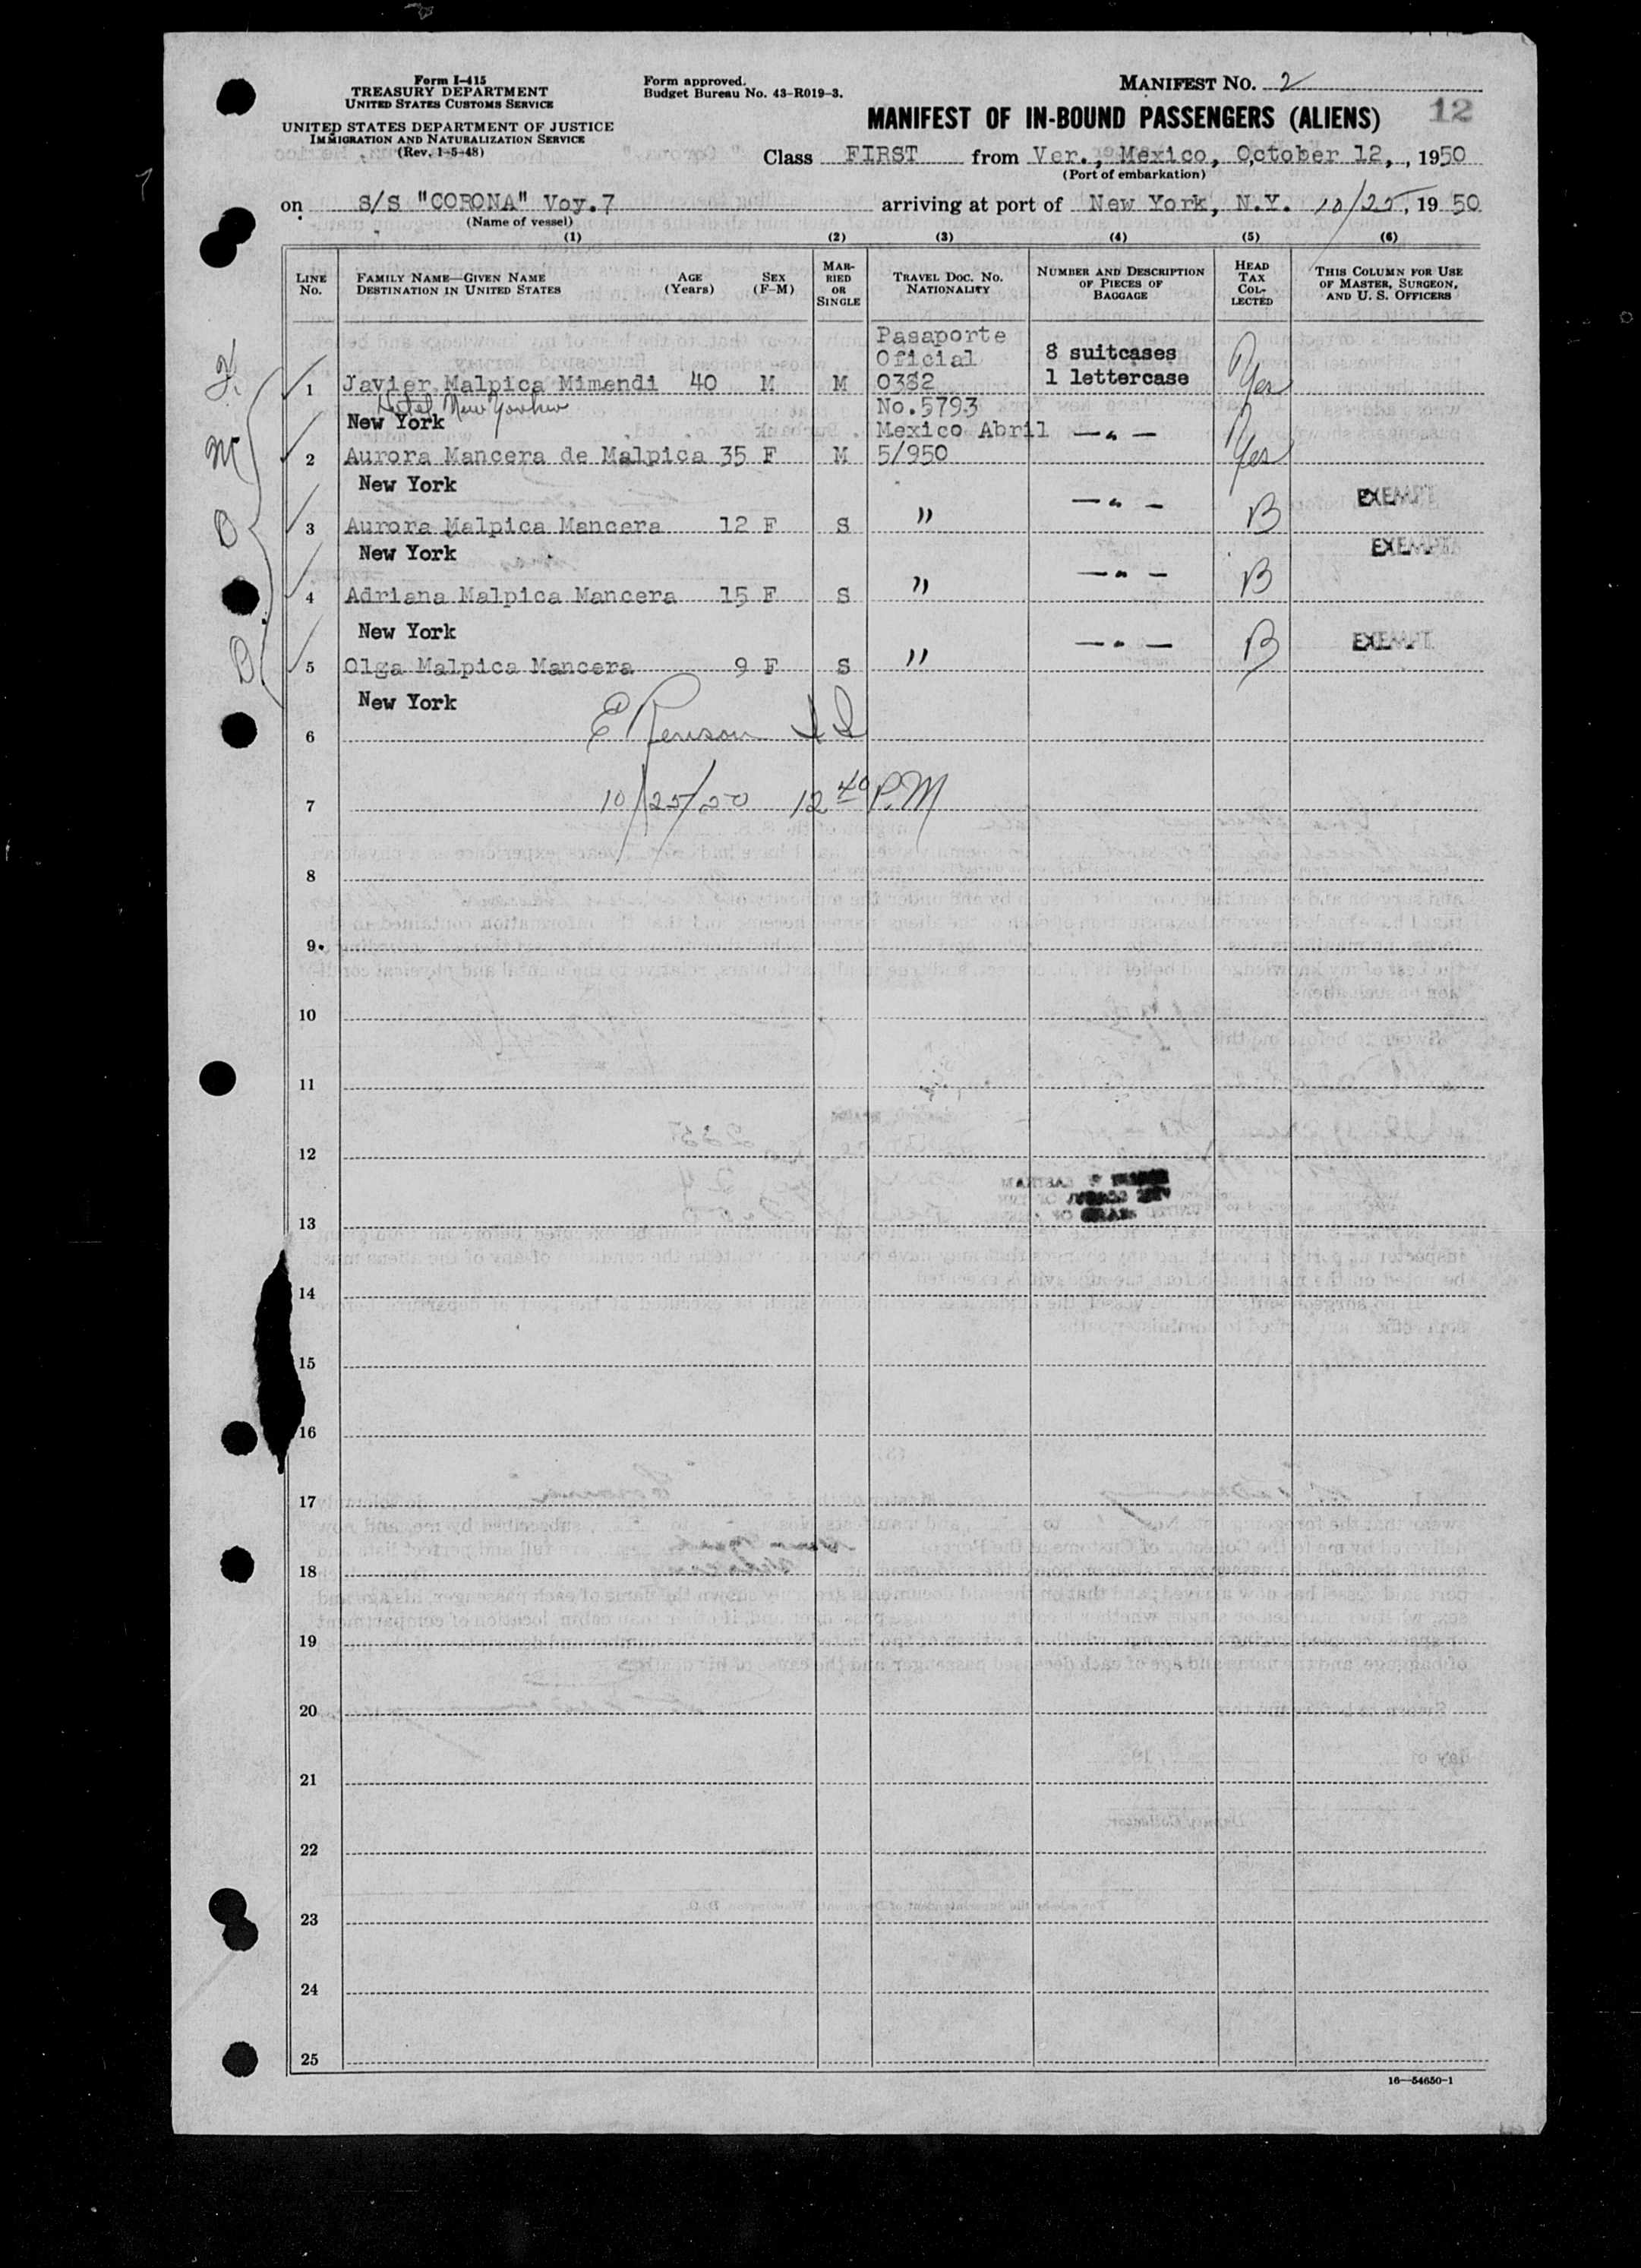 Form I-415
TREASURY DEPARTMENT
UNITED STATES CUSTOMS SERVICE
UNITED STATES DEPARTMENT OF JUSTICE
IMMIGRATION AND NATURALIZATION SERVICE
(Rev. 1-5-48)
Form approved.
Budget Bureau No. 43-R019-3.
MANIFEST NO. 2
MANIFEST OF IN-BOUND PASSENGERS (ALIENS) 12
Class FIRST from Ver., Mexico, October 12, , 1950
(Port of embarkation)
on S/S "CORONA" Voy.7 arriving at port of New York, N.Y. 10/25, 19 50
(Name of vessel)
(1) (2) (3) (4) (5) (6)
LINE No. FAMILY NAME—GIVEN NAME DESTINATION IN UNITED STATES AGE (Years) SEX (F-M) MARRIED OR SINGLE TRAVEL DOC. NO. NATIONALITY NUMBER AND DESCRIPTION OF PIECES OF BAGGAGE HEAD TAX COLLECTED THIS COLUMN FOR USE OF MASTER, SURGEON, AND U. S. OFFICERS
Pasaporte
Oficial 8 suitcases
1 Javier Malpica Mimendi 40 M M 0382 1 lettercase Yes
Hotel New Yorker
New York No.5793
Mexico Abril —"—
2 Aurora Mancera de Malpica 35 F M 5/950 Yes
New York —"— EXEMPT
3 Aurora Malpica Mancera 12 F S " B
New York —"— EXEMPT
4 Adriana Malpica Mancera 15 F S " B
New York —"— EXEMPT
5 Olga Malpica Mancera 9 F S " B
New York
6
10/25/50 12 40 P.M
7
8
9
10
11
12
13
14
15
16
17
18
19
20
21
22
23
24
25
16—54650-1